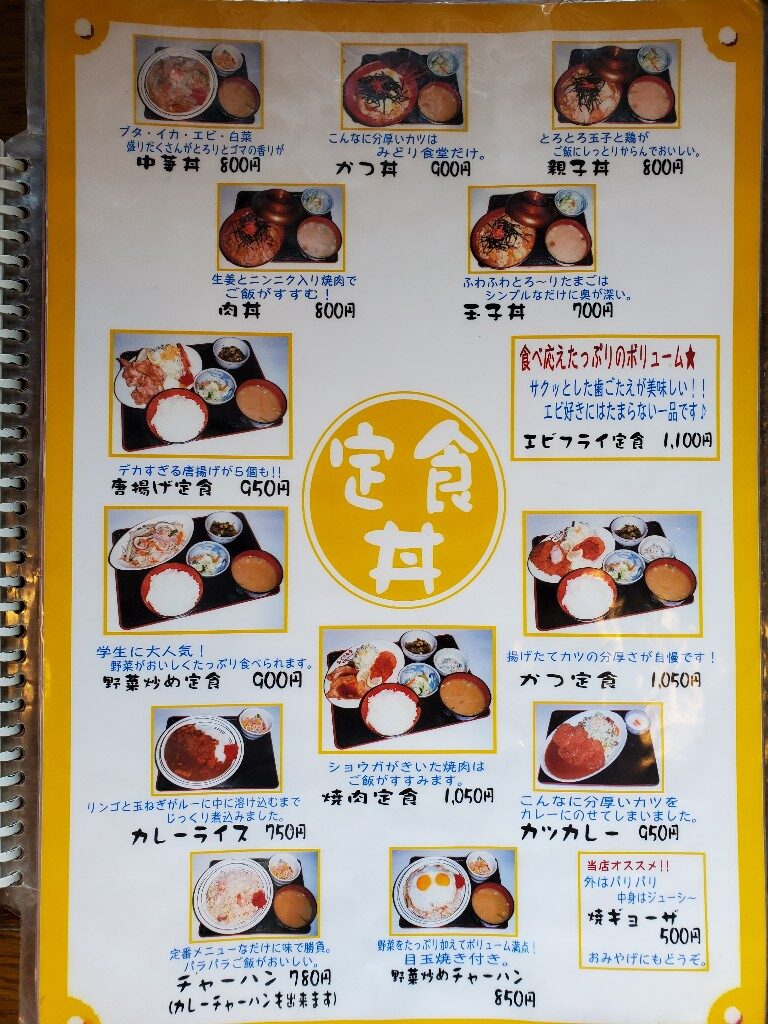 ブタ・イカ・エビ・白菜
盛りだくさんがとろりとゴマの香りが
中華丼 800円
こんなに分厚いカツは
みどり食堂だけ。
かつ丼 900円
とろとろ玉子と鶏が
ご飯にしっとりからんでおいしい。
親子丼 800円
生姜とニンニク入り焼肉で
ご飯がすすむ！
肉丼 800円
ふわふわとろ〜りたまごは
シンプルなだけに奥が深い。
玉子丼 700円
デカすぎる唐揚げが５個も!!
唐揚げ定食 950円
食べ応えたっぷりのボリューム★
サクッとした歯ごたえが美味しい！！
エビ好きにはたまらない一品です♪
エビフライ定食 1,100円
定食
丼
学生に大人気！
野菜がおいしくたっぷり食べられます。
野菜炒め定食 900円
揚げたてカツの分厚さが自慢です！
かつ定食 1,050円
ショウガがきいた焼肉は
ご飯がすすみます。
焼肉定食 1,050円
リンゴと玉ねぎがルーに中に溶け込むまで
じっくり煮込みました。
カレーライス 750円
こんなに分厚いカツを
カレーにのせてしまいました。
カツカレー 950円
定番メニューなだけに味で勝負。
パラパラご飯がおいしい。
チャーハン 780円
(カレーチャーハンも出来ます)
野菜をたっぷり加えてボリューム満点！
目玉焼き付き。
野菜炒めチャーハン
850円
当店オススメ!!
外はパリパリ
中身はジューシ〜
焼ギョーザ
500円
おみやげにもどうぞ。